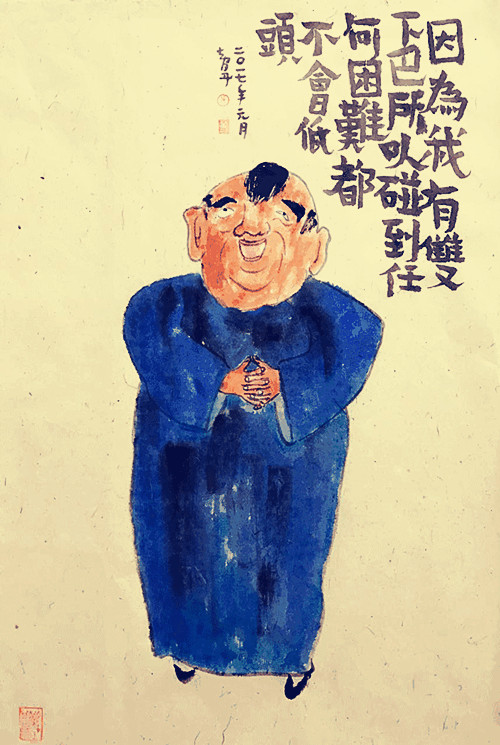 因為我有雙
下巴所以碰到任
何困難都
不會低
頭
二〇一七年元月